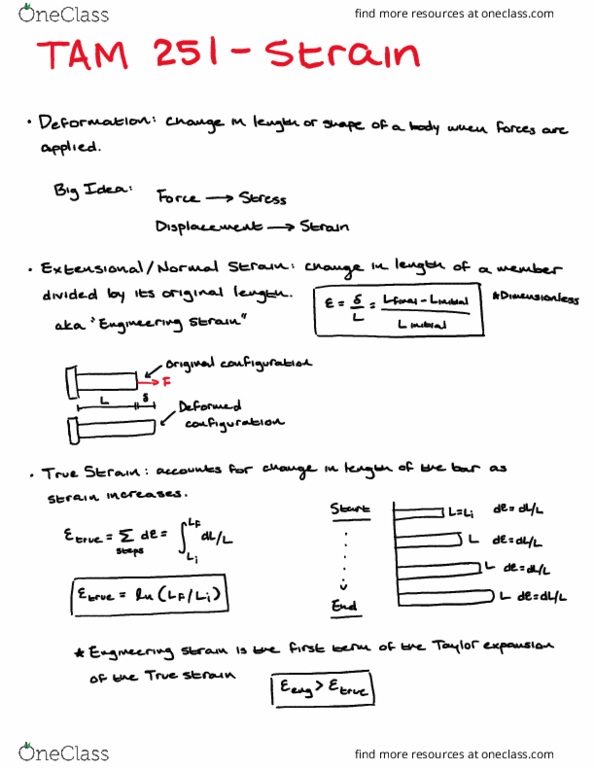 OneClass
find more resources at oneclass.com
TAM 251 - Strain
• Deformation: change in length or shape of a body when forces are
applied.
Big Idea: Force → Stress
Displacement → Strain
• Extensional/Normal Strain: change in length of a member
divided by its original length.
ε = δ/L = (Lfinal - Linitial)/Linitial
*Dimensionless
aka "Engineering Strain"
Original configuration
F
L δ
Deformed
configuration
• True Strain: accounts for change in length of the bar as
strain increases.
εtrue = Σ dε = ∫ dL/L
steps
Lf
Li
εtrue = ln (LF/Li)
Start
End
L=Li dε = dL/L
L dε = dL/L
L dε = dL/L
L dε = dL/L
* Engineering strain is the first term of the Taylor expansion
of the True strain
εeng > εtrue
OneClass
find more resources at oneclass.com